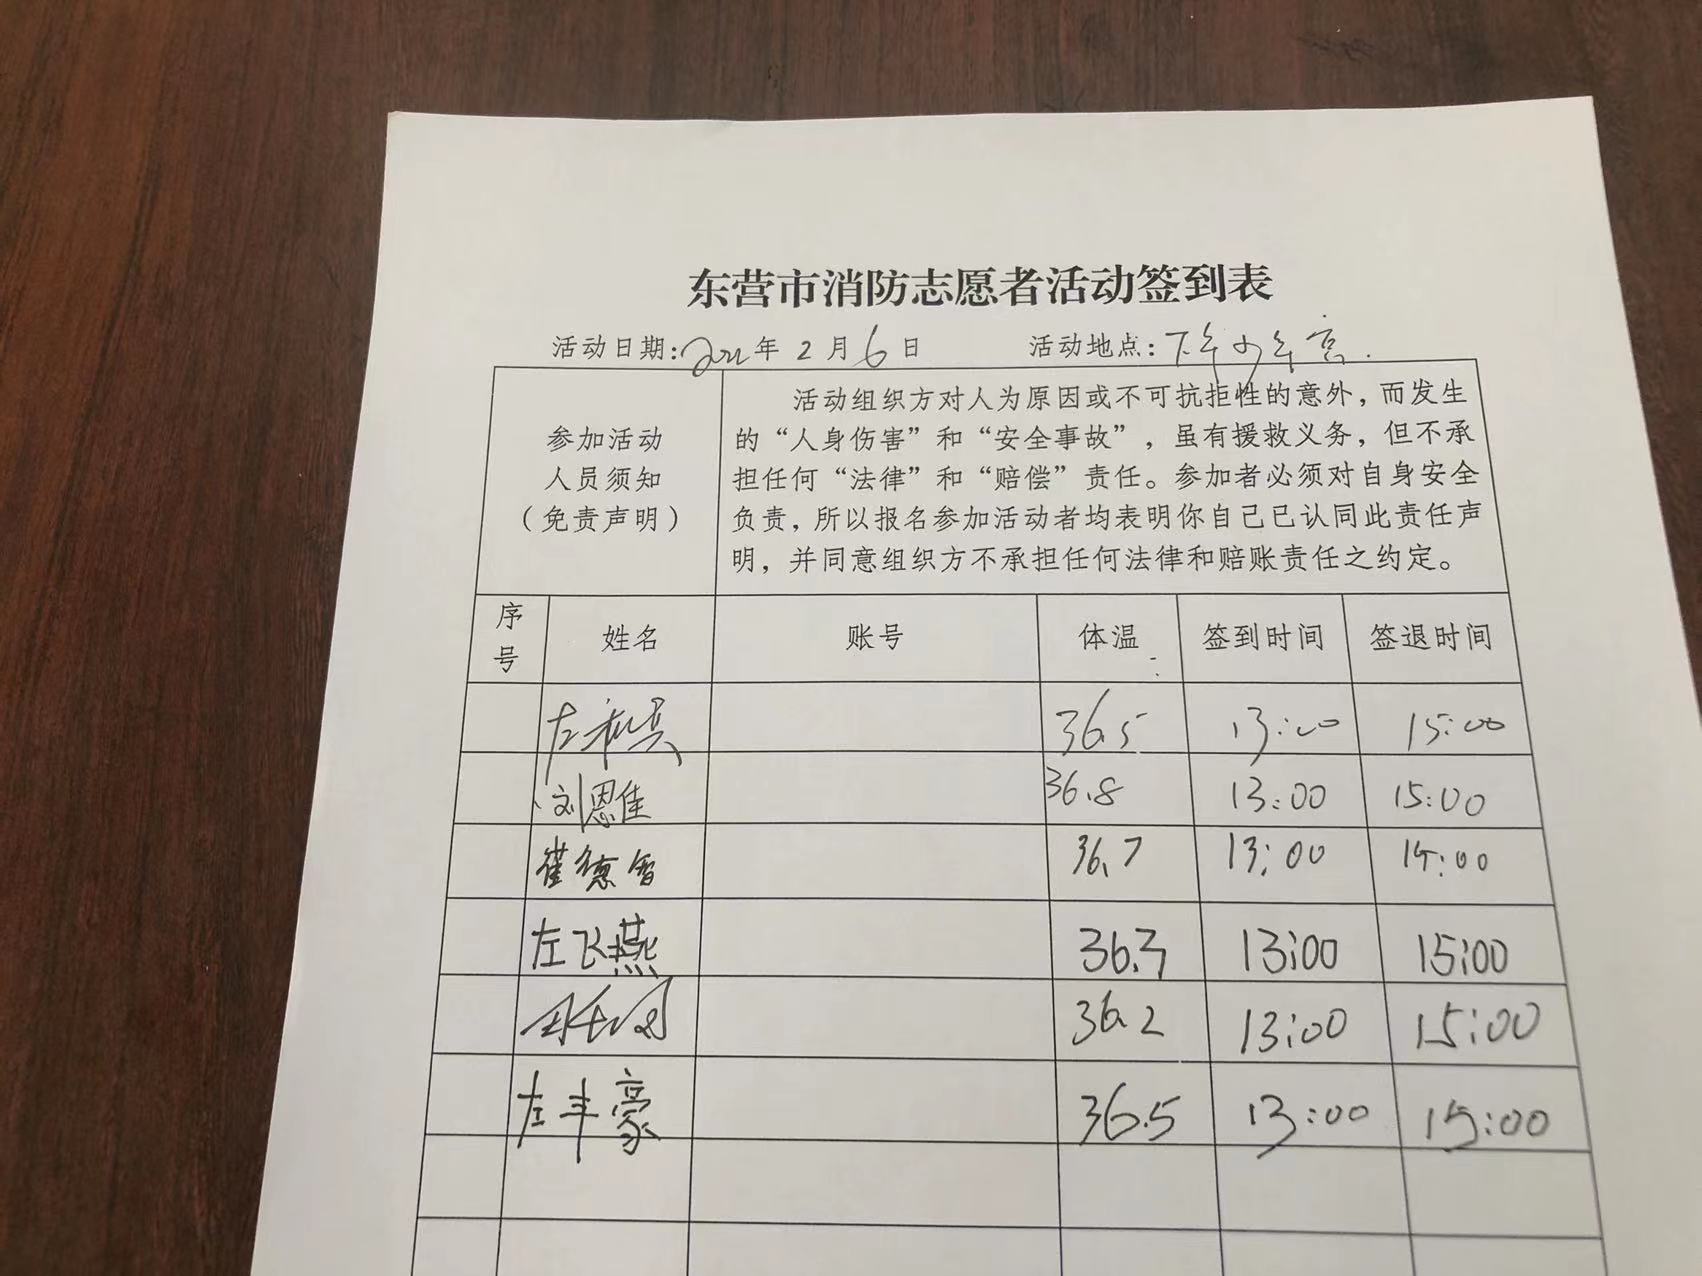 东营市消防志愿者活动签到表
活动日期: 年 2 月 6 日 活动地点: 少年宫.
参加活动
人员须知
(免责声明)
活动组织方对人为原因或不可抗拒性的意外，而发生
的“人身伤害”和“安全事故”，虽有援救义务，但不承
担任何“法律”和“赔偿”责任。参加者必须对自身安全
负责，所以报名参加活动者均表明你自己已认同此责任声
明，并同意组织方不承担任何法律和赔账责任之约定。
序号 姓名 账号 体温 签到时间 签退时间
左 36.5 13:00 15:00
刘恩佳 36.8 13:00 15:00
崔德智 36.7 13:00 15:00
左飞燕 36.3 13:00 15:00
36.2 13:00 15:00
左丰豪 36.5 13:00 15:00